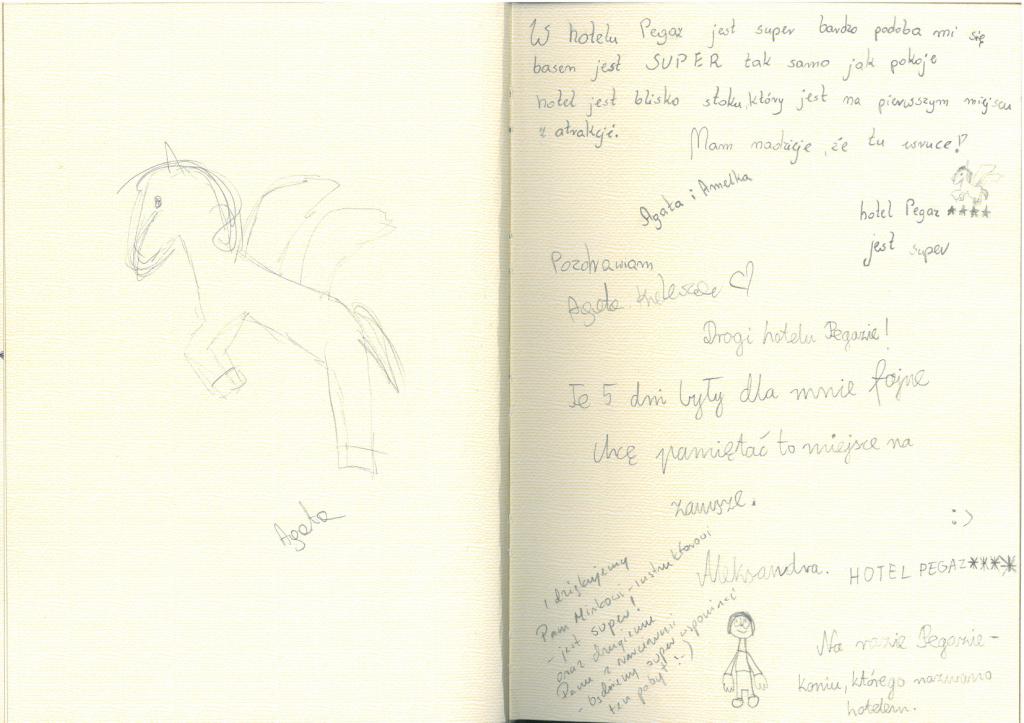 Agata
W hotelu Pegaz jest super bardzo podoba mi się
basen jest SUPER tak samo jak pokoje
hotel jest blisko stoku, który jest na pierwszym miejscu
z atrakcji.
Mam nadzieje, że tu wruce!
Agata i Amelka
hotel Pegaz ****
jest super
Pozdrawiam
Agata
Drogi hotelu Pegazie!
Te 5 dni były dla mnie fajne
Chcę pamiętać to miejsce na
zawsze.
:)
Aleksandra.
HOTEL PEGAZ****
I dziękujemy
Panu Mirkowi-instruktorowi
- jest super!
oraz drugiemu
Panu z narciarni
- będziemy super wspominać
ten pobyt! :-)
Na razie Pegazie-
koniu, którego nazwano
hotelem.